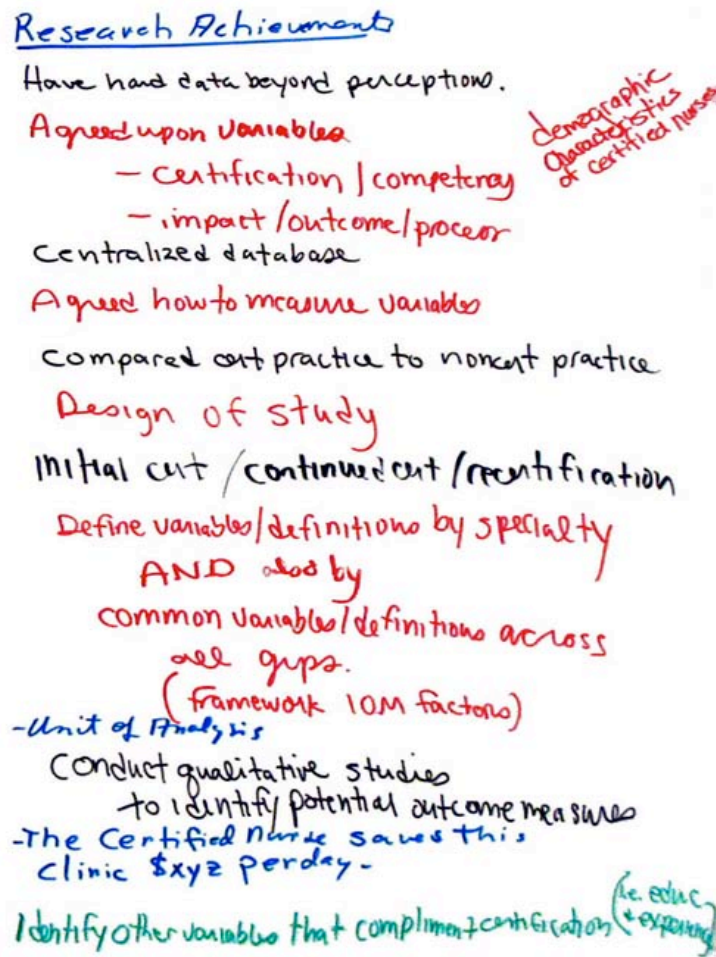 Research Achievements
Have hard data beyond perceptions.
Agreed upon variables
demographic
characteristics
of certified nurses
- certification / competency
- impact / outcome / process
Centralized database
Agreed how to measure variables
Compared cert practice to noncert practice
Design of study
Initial cert / continued cert / recertification
Define variables / definitions by specialty
AND also by
common variables / definitions across
all grps.
(framework IOM factors)
- Unit of Analysis
Conduct qualitative studies
to identify potential outcome measures
- The Certified nurse saves this
clinic $xyz per day -
Identify other variables that compliment certification (i.e. educ
+ experience)